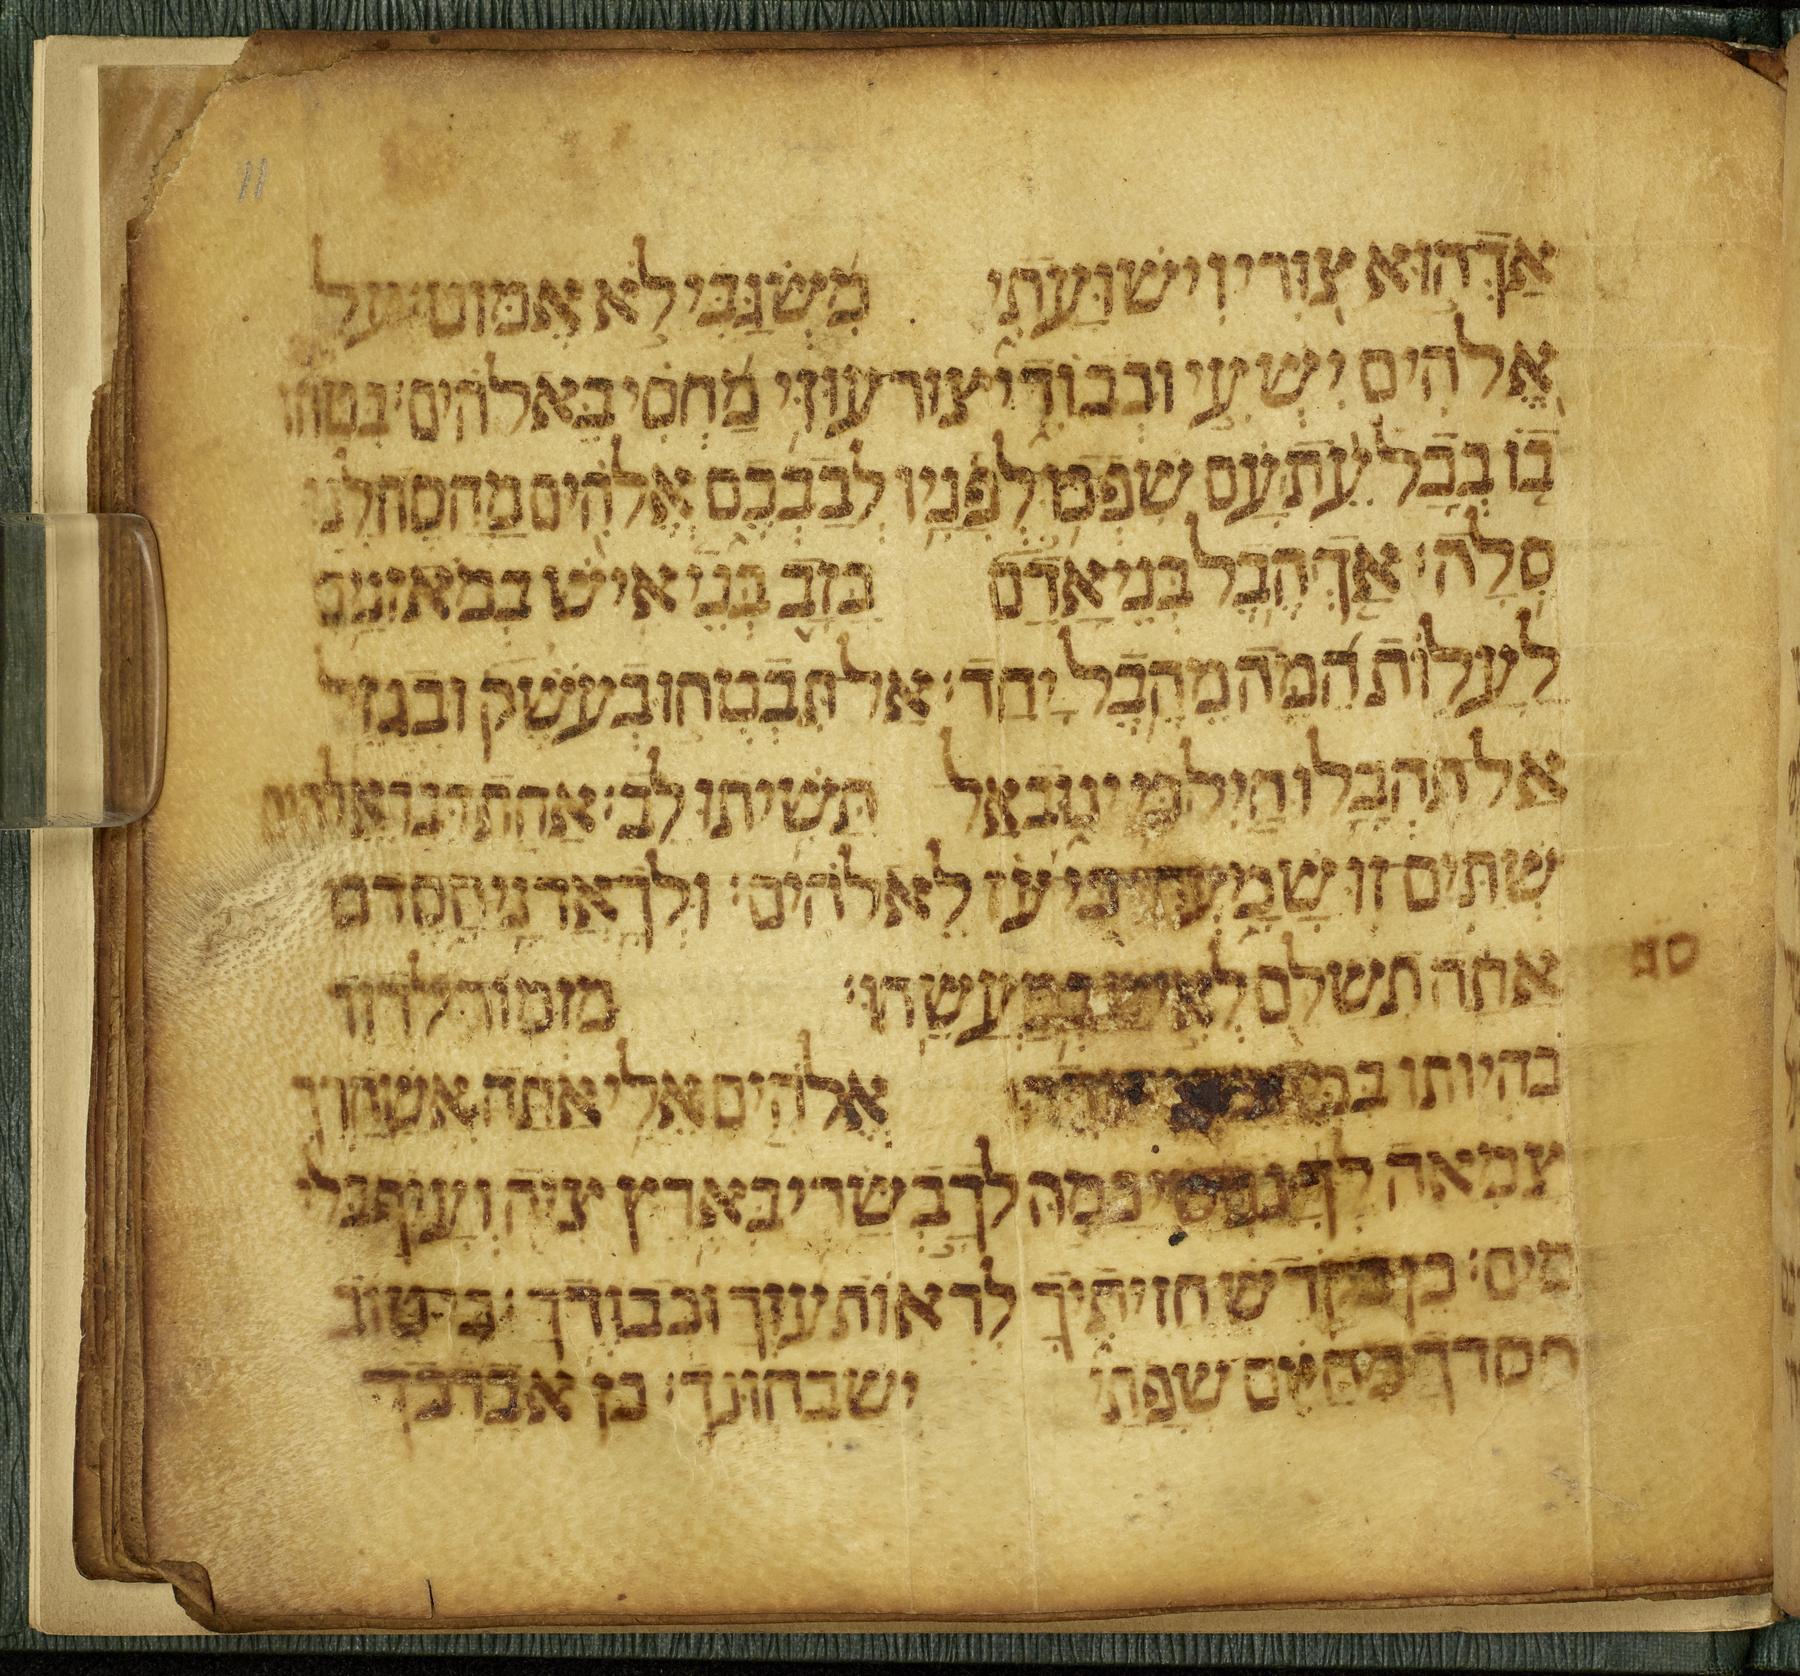 11
אך הוא צורי וישועתי משגבי לא אמוט׳ על
אלהים ישעי וכבודי צור עוזי מחסי באלהים׳ בטחו
בו בכל עת עם שפכו לפניו לבבכם אלהים מחסה לנו
סלה׳ אך הבל בני אדם כזב בני איש במאזנים
לעלות המה מהבל יחד׳ אל תבטחו בעשק ובגזל
אל תהבלו חיל כי ינוב אל תשיתו לב׳ אחת דבר אלהים
שתים זו שמעתי כי עז לאלהים׳ ולך אדני חסד כי
אתה תשלם לאיש כמעשהו׳ מזמור לדוד
סג
בהיותו במדבר יהודה אלהים אלי אתה אשחרך
צמאה לך נפשי כמה לך בשרי בארץ ציה ועיף בלי
מים׳ כן בקדש חזיתיך לראות עזך וכבודך׳ כי טוב
חסדך מחיים שפתי ישבחונך׳ כן אברכך